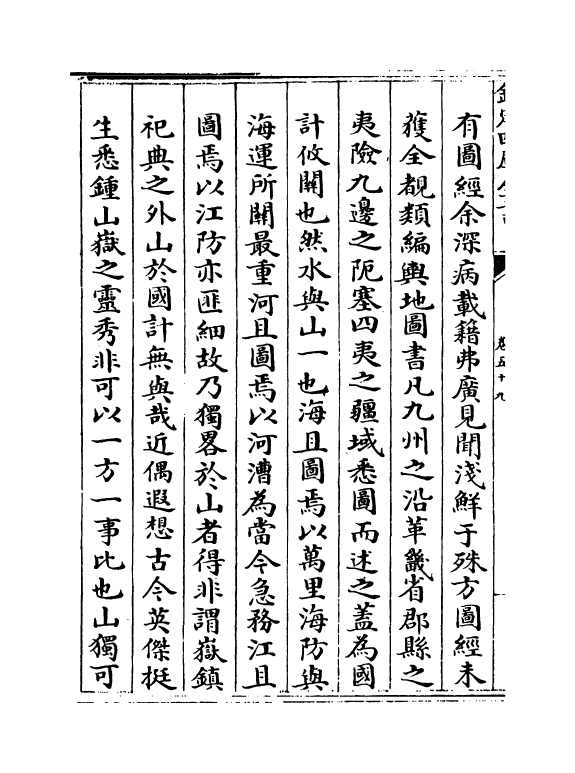 有圖經余深病載籍弗廣見聞淺鮮于殊方圖經未
獲全覩類編輿地圖書凡九州之沿革畿省郡縣之
夷險九邊之阨塞四夷之疆域悉圖而述之蓋為國
計攸闗也然水與山一也海且圖焉以萬里海防與
海運所闗最重河且圖焉以河漕為當今急務江且
圖焉以江防亦匪細故乃獨畧於山者得非謂嶽鎮
祀典之外山於國計無與哉近偶遐想古今英傑挺
生悉鍾山嶽之靈秀非可以一方一事比也山獨可
卷五十九